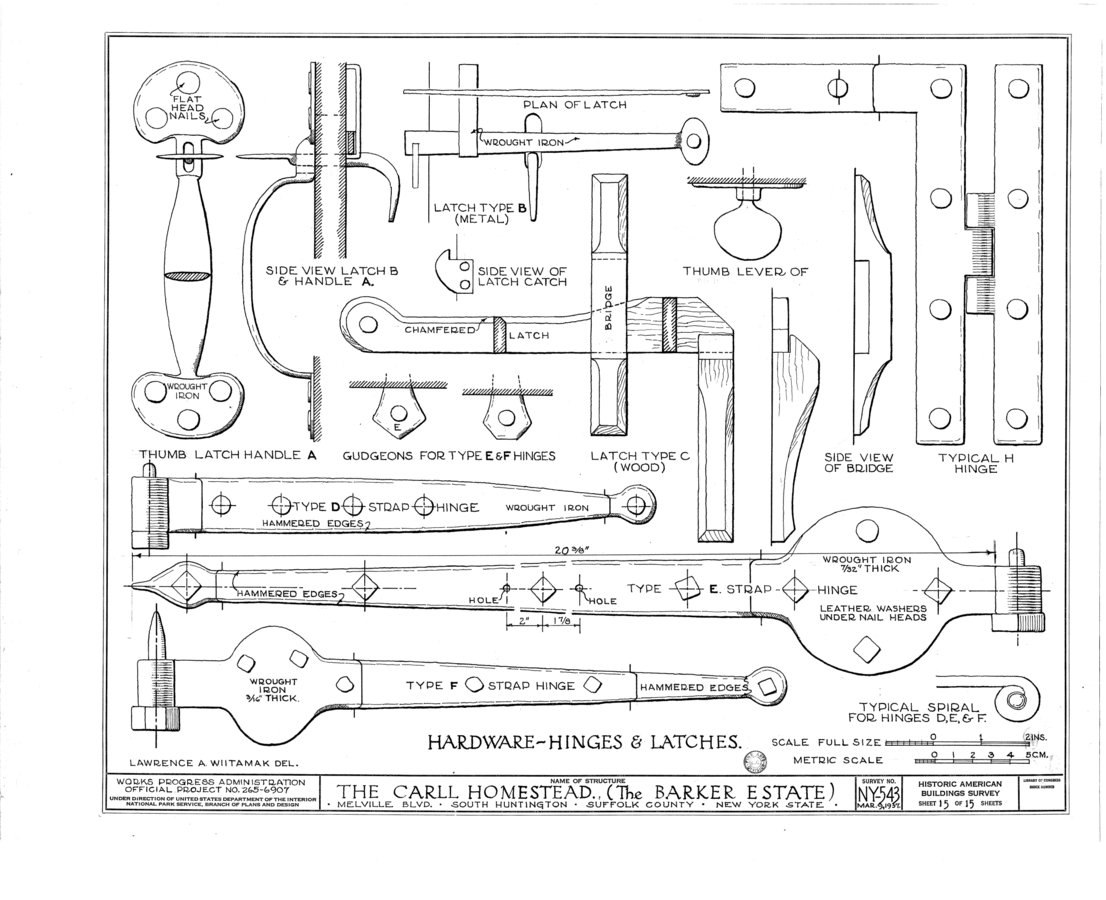 FLAT
HEAD
NAILS
WROUGHT
IRON
THUMB LATCH HANDLE A
SIDE VIEW LATCH B
& HANDLE A.
PLAN OF LATCH
WROUGHT IRON
LATCH TYPE B
(METAL)
SIDE VIEW OF
LATCH CATCH
CHAMFERED
LATCH
BRIDGE
E
GUDGEONS FOR TYPE E&F HINGES
LATCH TYPE C
(WOOD)
THUMB LEVER OF
SIDE VIEW
OF BRIDGE
TYPICAL H
HINGE
TYPE D STRAP HINGE
WROUGHT IRON
HAMMERED EDGES
20 3/8"
HAMMERED EDGES
HOLE
HOLE
2"
1 7/8
TYPE E. STRAP HINGE
WROUGHT IRON
7/32" THICK
LEATHER WASHERS
UNDER NAIL HEADS
WROUGHT
IRON
3/16" THICK.
TYPE F STRAP HINGE
HAMMERED EDGES
TYPICAL SPIRAL
FOR HINGES D,E,& F.
HARDWARE~HINGES & LATCHES.
SCALE FULL SIZE 0 1 2INS.
METRIC SCALE 0 1 2 3 4 5CM.
LAWRENCE A. WIITAMAK DEL.
WORKS PROGRESS ADMINISTRATION
OFFICIAL PROJECT NO. 265-6907
UNDER DIRECTION OF UNITED STATES DEPARTMENT OF THE INTERIOR
NATIONAL PARK SERVICE, BRANCH OF PLANS AND DESIGN
NAME OF STRUCTURE
THE CARLL HOMESTEAD., (THE BARKER ESTATE)
· MELVILLE BLVD. · SOUTH HUNTINGTON · SUFFOLK COUNTY · NEW YORK STATE ·
SURVEY NO.
NY-543
MAR. 9, 1937.
HISTORIC AMERICAN
BUILDINGS SURVEY
SHEET 15 OF 15 SHEETS
LIBRARY OF CONGRESS
INDEX NUMBER